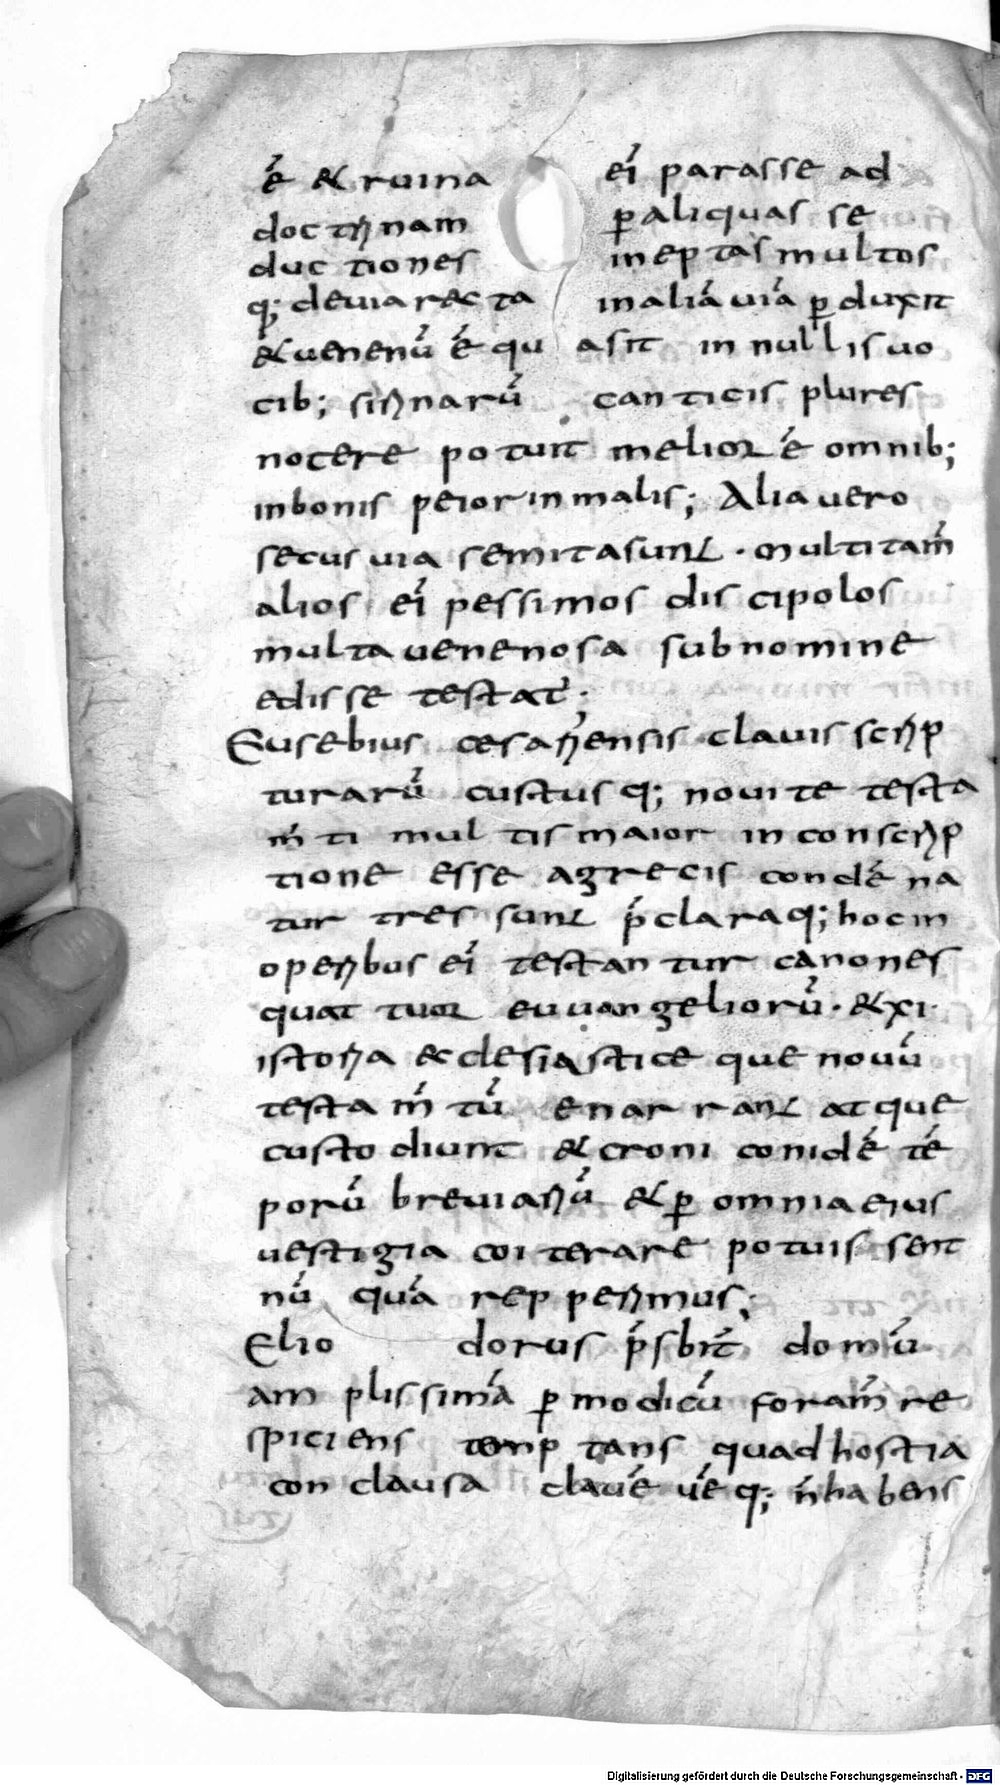 ē & ruina ei parasse ad
doctrinam ꝑ aliquas se
ductiones ineptas multos
q; deuia recta in aliā uiā ꝑ duxit
& uenenū ē qu asit in nullis uo
cib; sirinarū canticis plures
nocere potuit melior ē omnib;
in bonis peior in malis; Alia uero
secus uia semitasunt · multi tam̄
alios ei pessimos discipolos
multa uenenosa sub nomine
edisse testat̄;
Eusebius cesariensis clauis scrip
turarū custus q; noui te testa
m̄ ti multis maior in conscrip
tione esse a grecis condē na
tur tres sunt p̄clara q; hoc in
operibus ei testantur canones
quattuor euuangeliorū · & xi ·
istoria ecclesiastice que nouū
testa m̄ tū enarrant atque
custodiunt & croni conidē tē
porū breuiariū & ꝑ omnia eius
uestigia coiterare potuis sent
nū quā repperimus;
Elio dorus p̄sbit̄ domū
amplissimā ꝑ modicū foram̄ re
spiciens temptans quad hostia
con clausa clauē uē q; n̄ habens
Digitalisierung gefördert durch die Deutsche Forschungsgemeinschaft - DFG